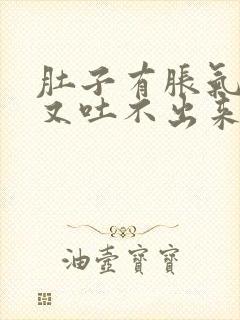 肚子有脹氣
又吐不出來
油壺寶寶